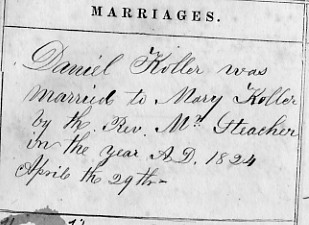 MARRIAGES.
Daniel Koller was
married to Mary Koller
by the Rev. Mr Steacher
in the year A.D. 1824
Aprile th 29th